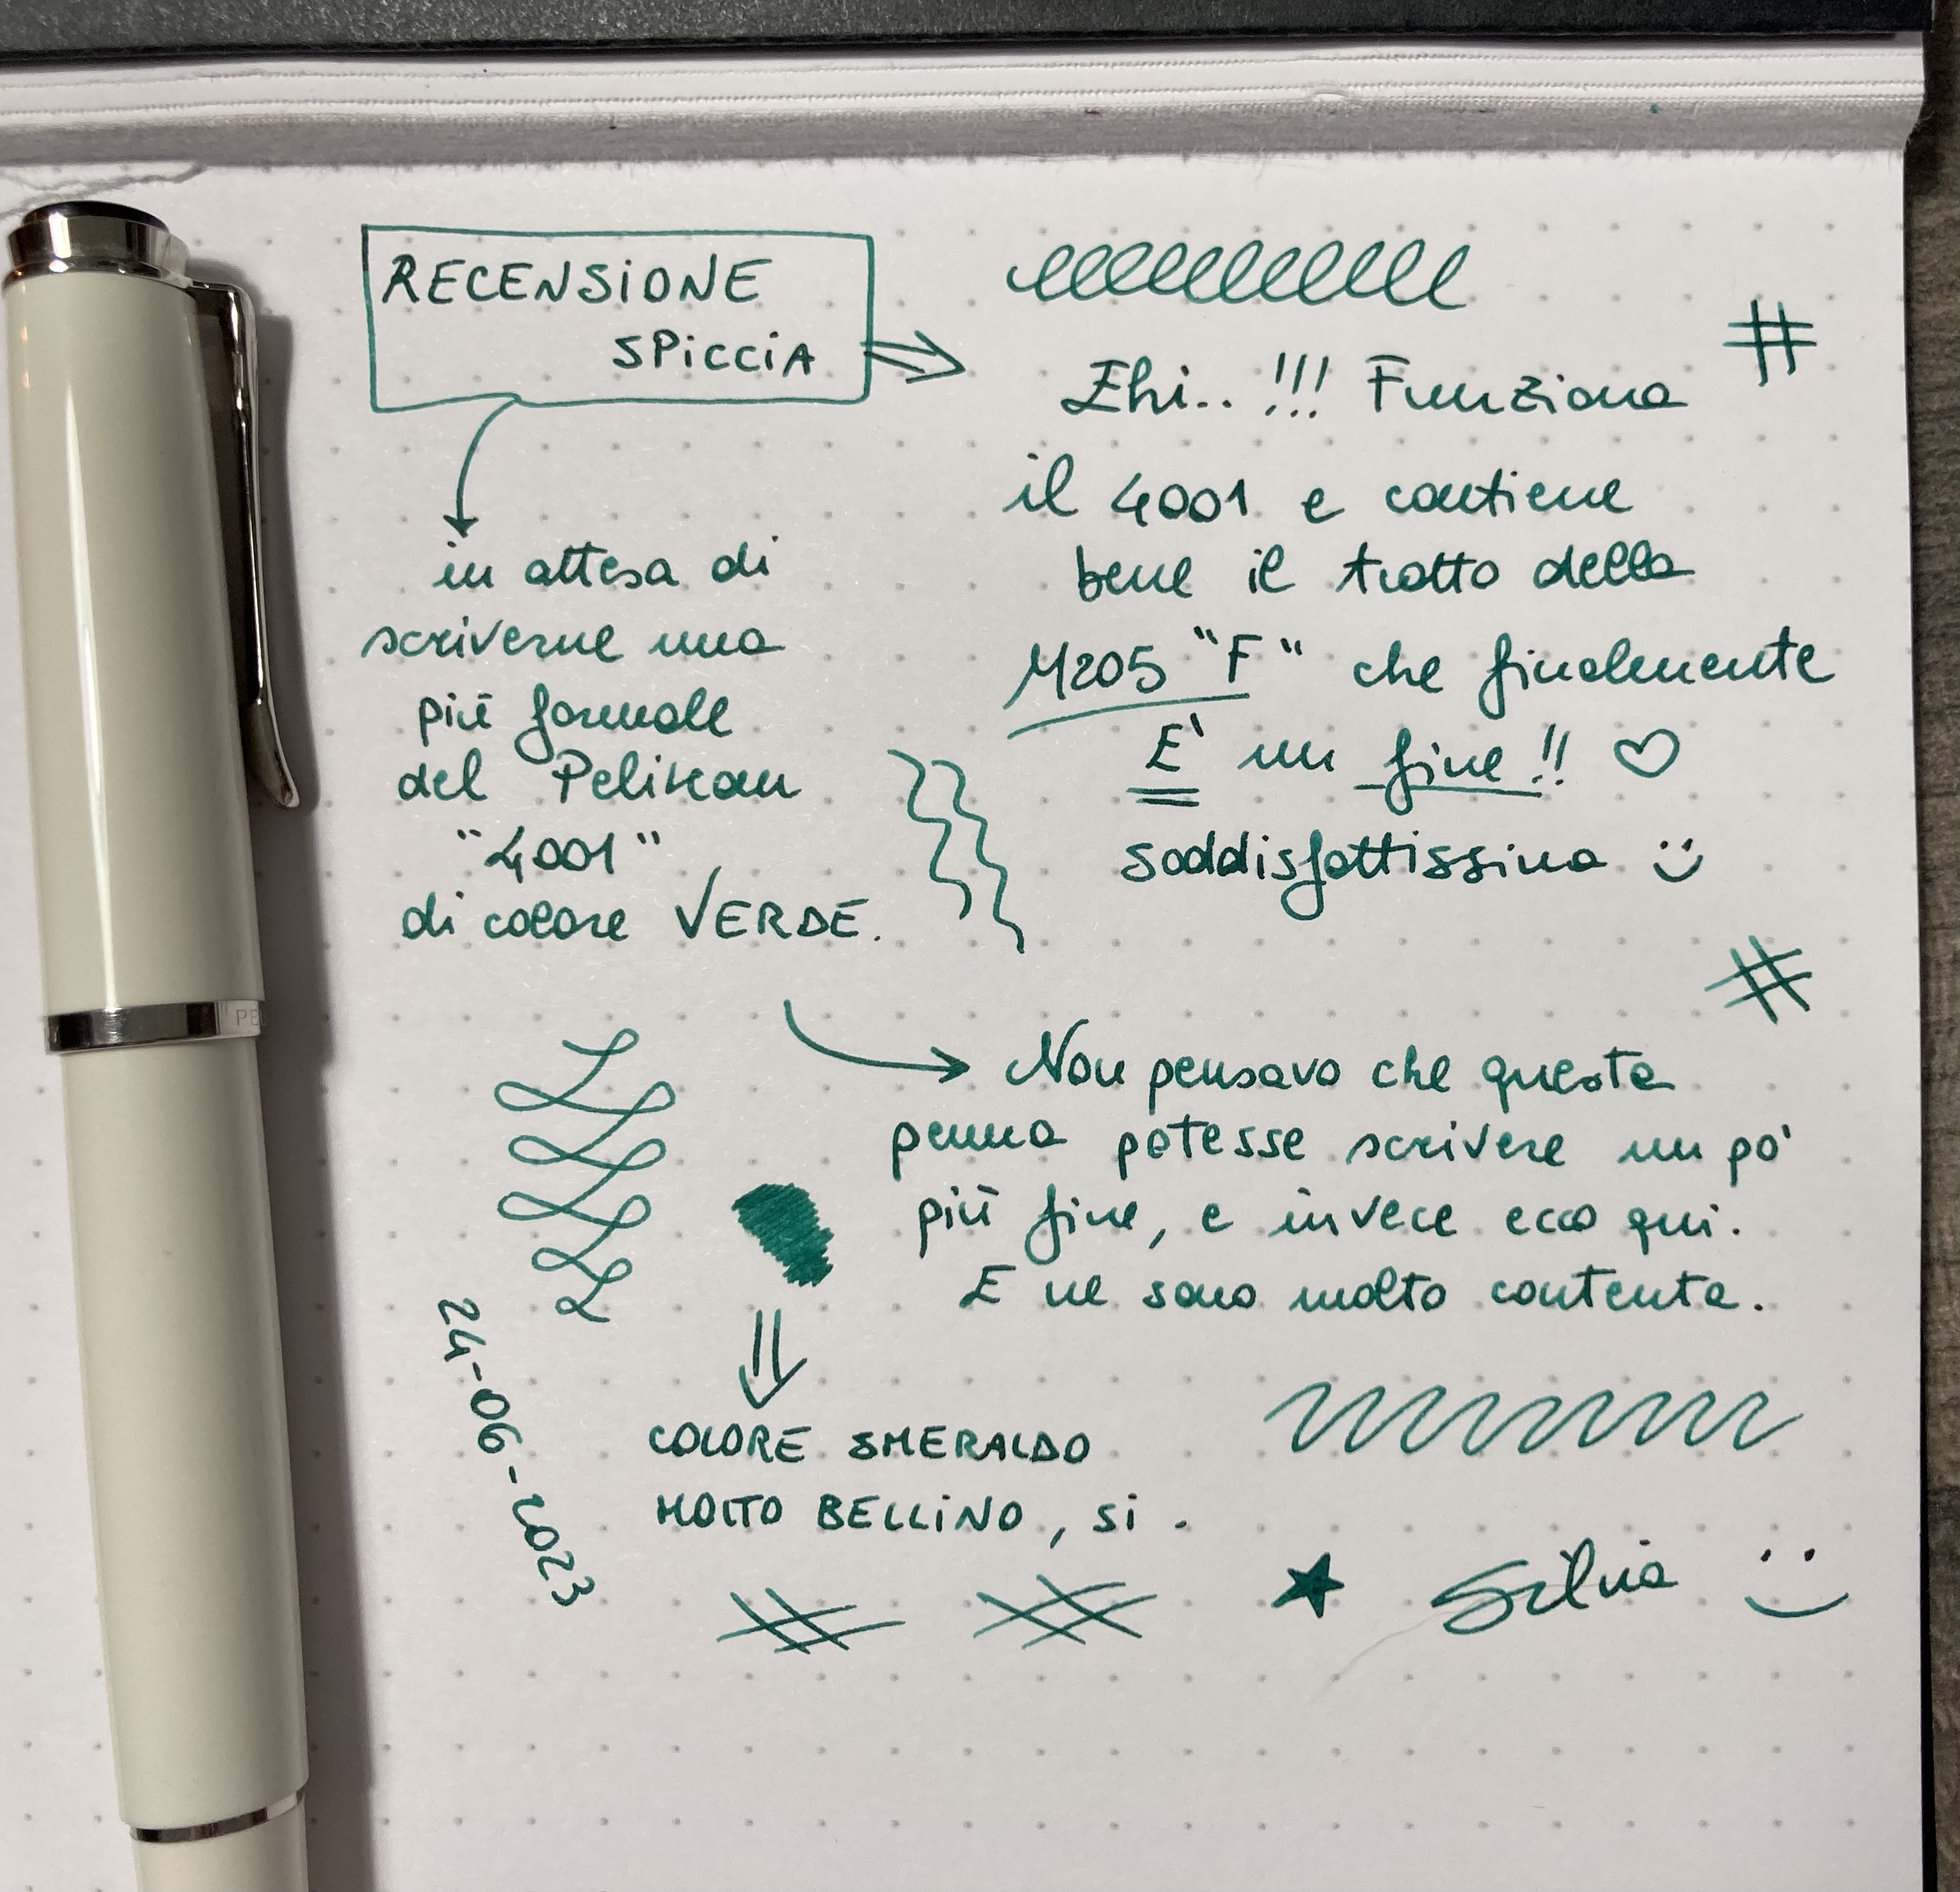 RECENSIONE
SPICCIA
in attesa di
scriverne una
più formale
del Pelikan
"4001"
di colore VERDE.
Ehi.. !!! Funziona
il 4001 e contiene
bene il tratto della
M205 "F" che finalmente
E' un fine !! ♡
soddisfattissima
Non pensavo che questa
penna potesse scrivere un po'
più fine, e invece ecco qui.
E ne sono molto contenta.
COLORE SMERALDO
MOLTO BELLINO, sì.
24-06-2023
★ Silvia
PE